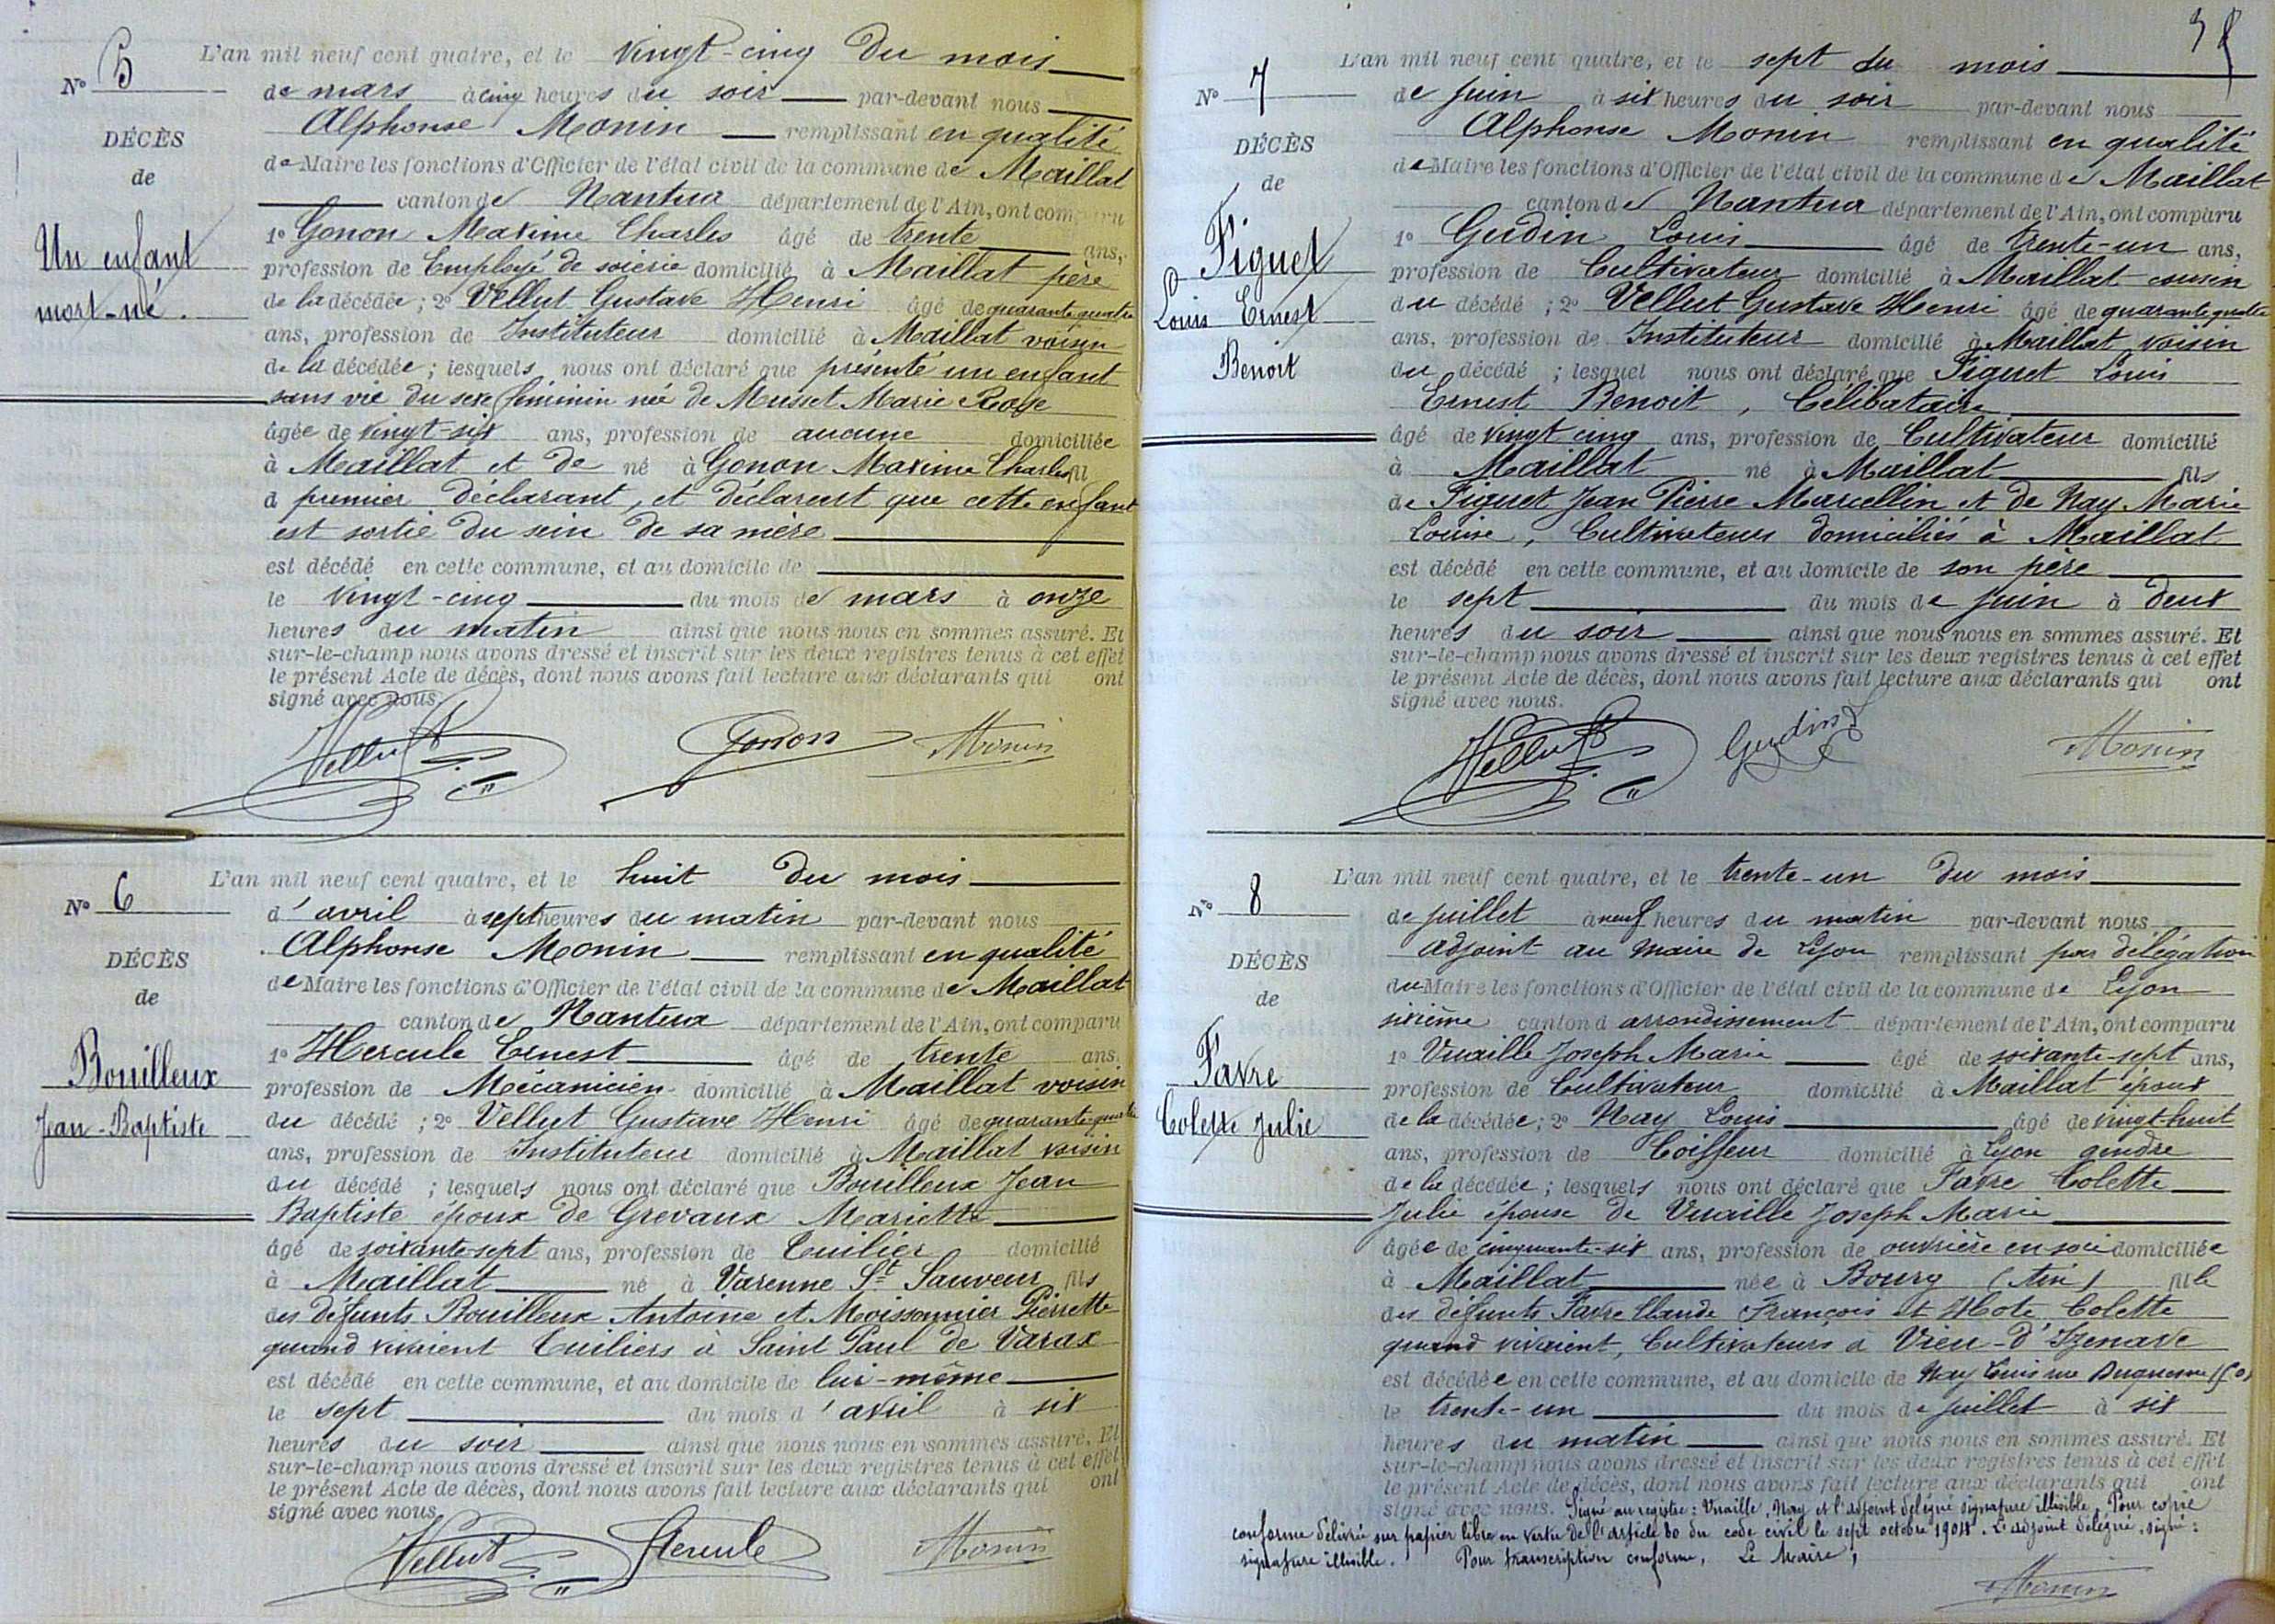 N° 5
DÉCÈS
de
Un enfant
mort-né.
L'an mil neuf cent quatre, et le vingt-cinq du mois
de mars à cinq heures du soir par-devant nous
Alphonse Monin remplissant en qualité
de Maire les fonctions d'Officier de l'état civil de la commune de Maillat
canton de Nantua département de l'Ain, ont comparu
1° Gonon Maxime Charles âgé de trente ans,
profession de Employé de soierie domicilié à Maillat père
de la décédée ; 2° Vellut Gustave Henri âgé de quarante quatre
ans, profession de Instituteur domicilié à Maillat voisin
de la décédée ; lesquels nous ont déclaré que présenté un enfant
sans vie du sexe féminin née de Musset Marie
âgée de vingt-six ans, profession de aucune domiciliée
à Maillat et de né à Gonon Maxime Charles fil
d premier déclarant, et déclarent que cette enfant
est sortie du sein de sa mère
est décédé en cette commune, et au domicile de
le vingt-cinq du mois de mars à onze
heures du matin ainsi que nous nous en sommes assuré. Et
sur-le-champ nous avons dressé et inscrit sur les deux registres tenus à cet effet
le présent Acte de décès, dont nous avons fait lecture aux déclarants qui ont
signé avec nous.
Vellut Gonon Monin
N° 6
DÉCÈS
de
Bouilleux
Jean-Baptiste
L'an mil neuf cent quatre, et le huit du mois
d'avril à sept heures du matin par-devant nous
Alphonse Monin remplissant en qualité
de Maire les fonctions d'Officier de l'état civil de la commune de Maillat
canton de Nantua département de l'Ain, ont comparu
1° Hercule Ernest âgé de trente ans.
profession de Mécanicien domicilié à Maillat voisin
du décédé ; 2° Vellut Gustave Henri âgé de quarante-quatre
ans, profession de Instituteur domicilié à Maillat voisin
du décédé ; lesquels nous ont déclaré que Bouilleux Jean
Baptiste époux de Grevaux Mariette
âgé de soixante-sept ans, profession de Tuilier domicilié
à Maillat né à Varenne St Sauveur fils
des défunts Bouilleux Antoine et Moissonnier Pierrette
quand vivaient Tuiliers à Saint Paul de Varax
est décédé en cette commune, et au domicile de lui-même
le sept du mois d'avril à six
heures du soir ainsi que nous nous en sommes assuré. Et
sur-le-champ nous avons dressé et inscrit sur les deux registres tenus à cet effet
le présent Acte de décès, dont nous avons fait lecture aux déclarants qui ont
signé avec nous.
Vellut Hercule Monin
N° 7
DÉCÈS
de
Figuet
Louis Ernest
Benoit
L'an mil neuf cent quatre, et le sept du mois
de juin à six heures du soir par-devant nous
Alphonse Monin remplissant en qualité
de Maire les fonctions d'Officier de l'état civil de la commune de Maillat
canton de Nantua département de l'Ain, ont comparu
1° Gudin Louis âgé de trente-un ans,
profession de Cultivateur domicilié à Maillat cousin
du décédé ; 2° Vellut Gustave Henri âgé de quarante quatre
ans, profession de Instituteur domicilié à Maillat voisin
du décédé ; lesquel nous ont déclaré que Figuet Louis
Ernest Benoit, Célibataire
âgé de vingt cinq ans, profession de Cultivateur domicilié
à Maillat né à Maillat fils
de Figuet Jean Pierre Marcellin et de Nay Marie
Louise, Cultivateurs domiciliés à Maillat
est décédé en cette commune, et au domicile de son père
le sept du mois de juin à deux
heures du soir ainsi que nous nous en sommes assuré. Et
sur-le-champ nous avons dressé et inscrit sur les deux registres tenus à cet effet
le présent Acte de décès, dont nous avons fait lecture aux déclarants qui ont
signé avec nous.
Vellut Gudin L Monin
N° 8
DÉCÈS
de
Favre
Colette Julie
L'an mil neuf cent quatre, et le trente-un du mois
de juillet à neuf heures du matin par-devant nous
adjoint au maire de Lyon remplissant par délégation
du Maire les fonctions d'Officier de l'état civil de la commune de Lyon
sixième canton d arrondissement département de l'Ain, ont comparu
1° Vuaille Joseph Marie âgé de soixante-sept ans,
profession de Cultivateur domicilié à Maillat époux
de la décédée ; 2° Nay Louis âgé de vingt-huit
ans, profession de Coiffeur domicilié à Lyon gendre
de la décédée ; lesquels nous ont déclaré que Favre Colette
Julie épouse de Vuaille Joseph Marie
âgée de cinquante-six ans, profession de ouvrière en soie domiciliée
à Maillat née à Bourg (Ain) fille
des défunts Favre Claude François et Hote Colette
quand vivaient, Cultivateurs à Vieu-d'Izenave
est décédée en cette commune, et au domicile de Nay Louis rue Duquesne
le trente-un du mois de juillet à six
heures du matin ainsi que nous nous en sommes assuré. Et
sur-le-champ nous avons dressé et inscrit sur les deux registres tenus à cet effet
le présent Acte de décès, dont nous avons fait lecture aux déclarants qui ont
signé avec nous. Signé au registre : Vuaille, Nay et l'adjoint délégué signature illisible. Pour copie
conforme délivrée sur papier libre en vertu de l'article 80 du code civil le sept octobre 1904. L'adjoint délégué, signé :
signature illisible. Pour transcription conforme, Le Maire,
Monin